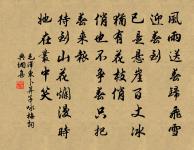 風雨送春歸飛雪
迎春到
已是懸崖百丈冰
獨有花枝俏
俏也不爭春只把
春來報
待到山花爛漫時
她在叢中笑
毛澤東卜算子詠梅詞